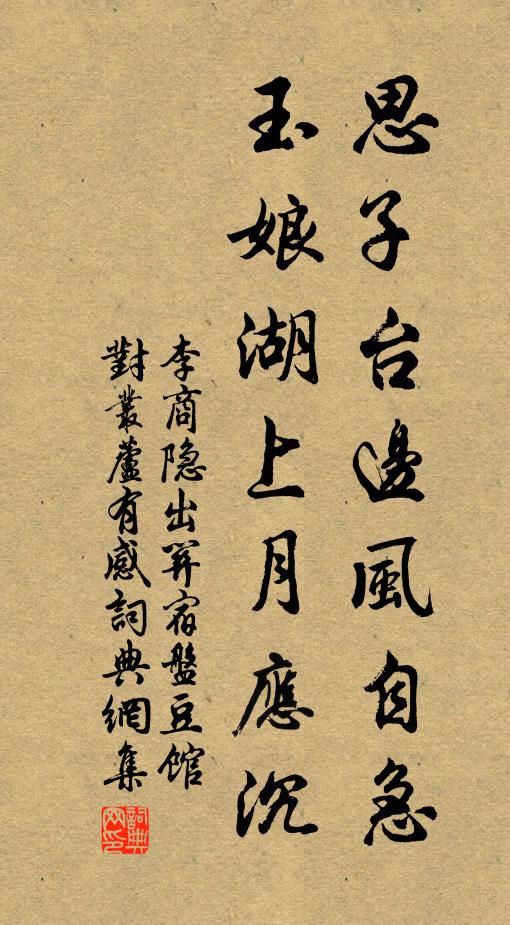 思子台邊風自急
玉娘湖上月應沉
李商隐出關宿盤豆館
對叢蘆有感詞典網集
詞典网印